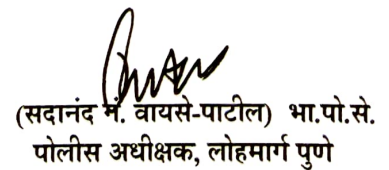 (सदानंद मं. वायसे-पाटील) भा.पो.से.
पोलीस अधीक्षक, लोहमार्ग पुणे